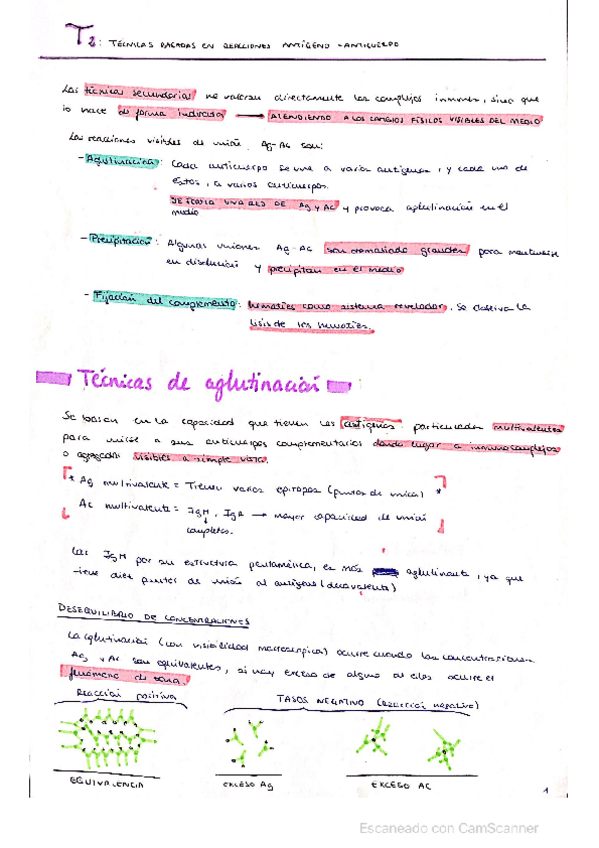 T2: TÉCNICAS BASADAS EN REACCIONES ANTÍGENO-ANTICUERPO
Las técnicas secundarias no valoran directamente los complejos inmunes, sino que
lo hace de forma indirecta → ATENDIENDO A LOS CAMBIOS FÍSICOS VISIBLES DEL MEDIO
Las reacciones visibles de unión Ag-Ac son:
- Aglutinación: Cada anticuerpo se une a varios antígenos, y cada uno de
estos, a varios anticuerpos.
SE FORMA UNA RED DE Ag y Ac y provoca aglutinación en el
medio
- Precipitación: Algunas uniones Ag-Ac son demasiado grandes para mantenerse
en disolución y precipitan en el medio
- Fijación del complemento: hematíes como sistema revelador. Se observa la
lisis de los hematíes.
Técnicas de aglutinación
Se basan en la capacidad que tienen los antígenos particulados multivalentes
para unirse a sus anticuerpos complementarios dando lugar a inmunocomplejos
o agregados visibles a simple vista.
* Ag multivalente = Tienen varios epítopos (puntos de unión) *
Ac multivalente = IgM, IgA → mayor capacidad de unión
completos.
Las IgM por su estructura pentamérica, es más aglutinante, ya que
tiene diez puntos de unión al antígeno (decavalente)
DESEQUILIBRIO DE CONCENTRACIONES
La aglutinación (con visibilidad macroscópica) ocurre cuando las concentraciones
Ag y Ac son equivalentes, si hay exceso de alguno de ellos ocurre el
fenómeno de zona.
Reacción positiva
FALSOS NEGATIVO (Reacción negativa)
EQUIVALENCIA
EXCESO Ag
EXCESO AC
1
Escaneado con CamScanner